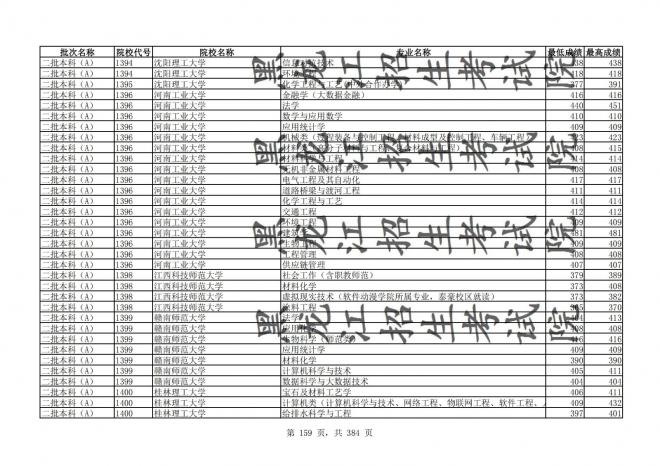 批次名称 院校代号 院校名称 专业名称 最低成绩 最高成绩
二批本科（A） 1394 沈阳理工大学 信息对抗技术 438 438
二批本科（A） 1394 沈阳理工大学 环境工程 418 418
二批本科（A） 1395 沈阳理工大学 化学工程与工艺(中外合作办学) 377 391
二批本科（A） 1396 河南工业大学 金融学（大数据金融） 416 416
二批本科（A） 1396 河南工业大学 法学 440 451
二批本科（A） 1396 河南工业大学 数学与应用数学 410 410
二批本科（A） 1396 河南工业大学 应用统计学 409 409
二批本科（A） 1396 河南工业大学 机械类（过程装备与控制工程、材料成型及控制工程、车辆工程） 423
二批本科（A） 1396 河南工业大学 415
二批本科（A） 1396 河南工业大学 材料科学与工程 414 414
二批本科（A） 1396 河南工业大学 无机非金属材料工程 408 408
二批本科（A） 1396 河南工业大学 电气工程及其自动化 417 417
二批本科（A） 1396 河南工业大学 道路桥梁与渡河工程 411 411
二批本科（A） 1396 河南工业大学 化学工程与工艺 414 414
二批本科（A） 1396 河南工业大学 交通工程 412 412
二批本科（A） 1396 河南工业大学 环境工程 409 409
二批本科（A） 1396 河南工业大学 建筑学 481
二批本科（A） 1396 河南工业大学 生物工程 409 409
二批本科（A） 1396 河南工业大学 工程管理 408 408
二批本科（A） 1396 河南工业大学 供应链管理 407 407
二批本科（A） 1398 江西科技师范大学 社会工作（含职教师范） 379 389
二批本科（A） 1398 江西科技师范大学 材料化学 373 408
二批本科（A） 1398 江西科技师范大学 虚拟现实技术（软件动漫学院所属专业，泰豪校区就读） 373 382
二批本科（A） 1398 江西科技师范大学 涂料工程 370
二批本科（A） 1399 赣南师范大学 法学 413
二批本科（A） 1399 赣南师范大学 应用化学 408
二批本科（A） 1399 赣南师范大学 生物科学（师范类） 416 416
二批本科（A） 1399 赣南师范大学 应用统计学 409 409
二批本科（A） 1399 赣南师范大学 材料化学 390 390
二批本科（A） 1399 赣南师范大学 计算机科学与技术 405 411
二批本科（A） 1399 赣南师范大学 数据科学与大数据技术 404 404
二批本科（A） 1400 桂林理工大学 宝石及材料工艺学 406 411
二批本科（A） 1400 桂林理工大学 计算机类（计算机科学与技术、网络工程、物联网工程、软件工程、 409 432
二批本科（A） 1400 桂林理工大学 给排水科学与工程 397 401
黑龙江招生考试院
黑龙江招生考试院
黑龙江招生考试院
第 159 页，共 384 页